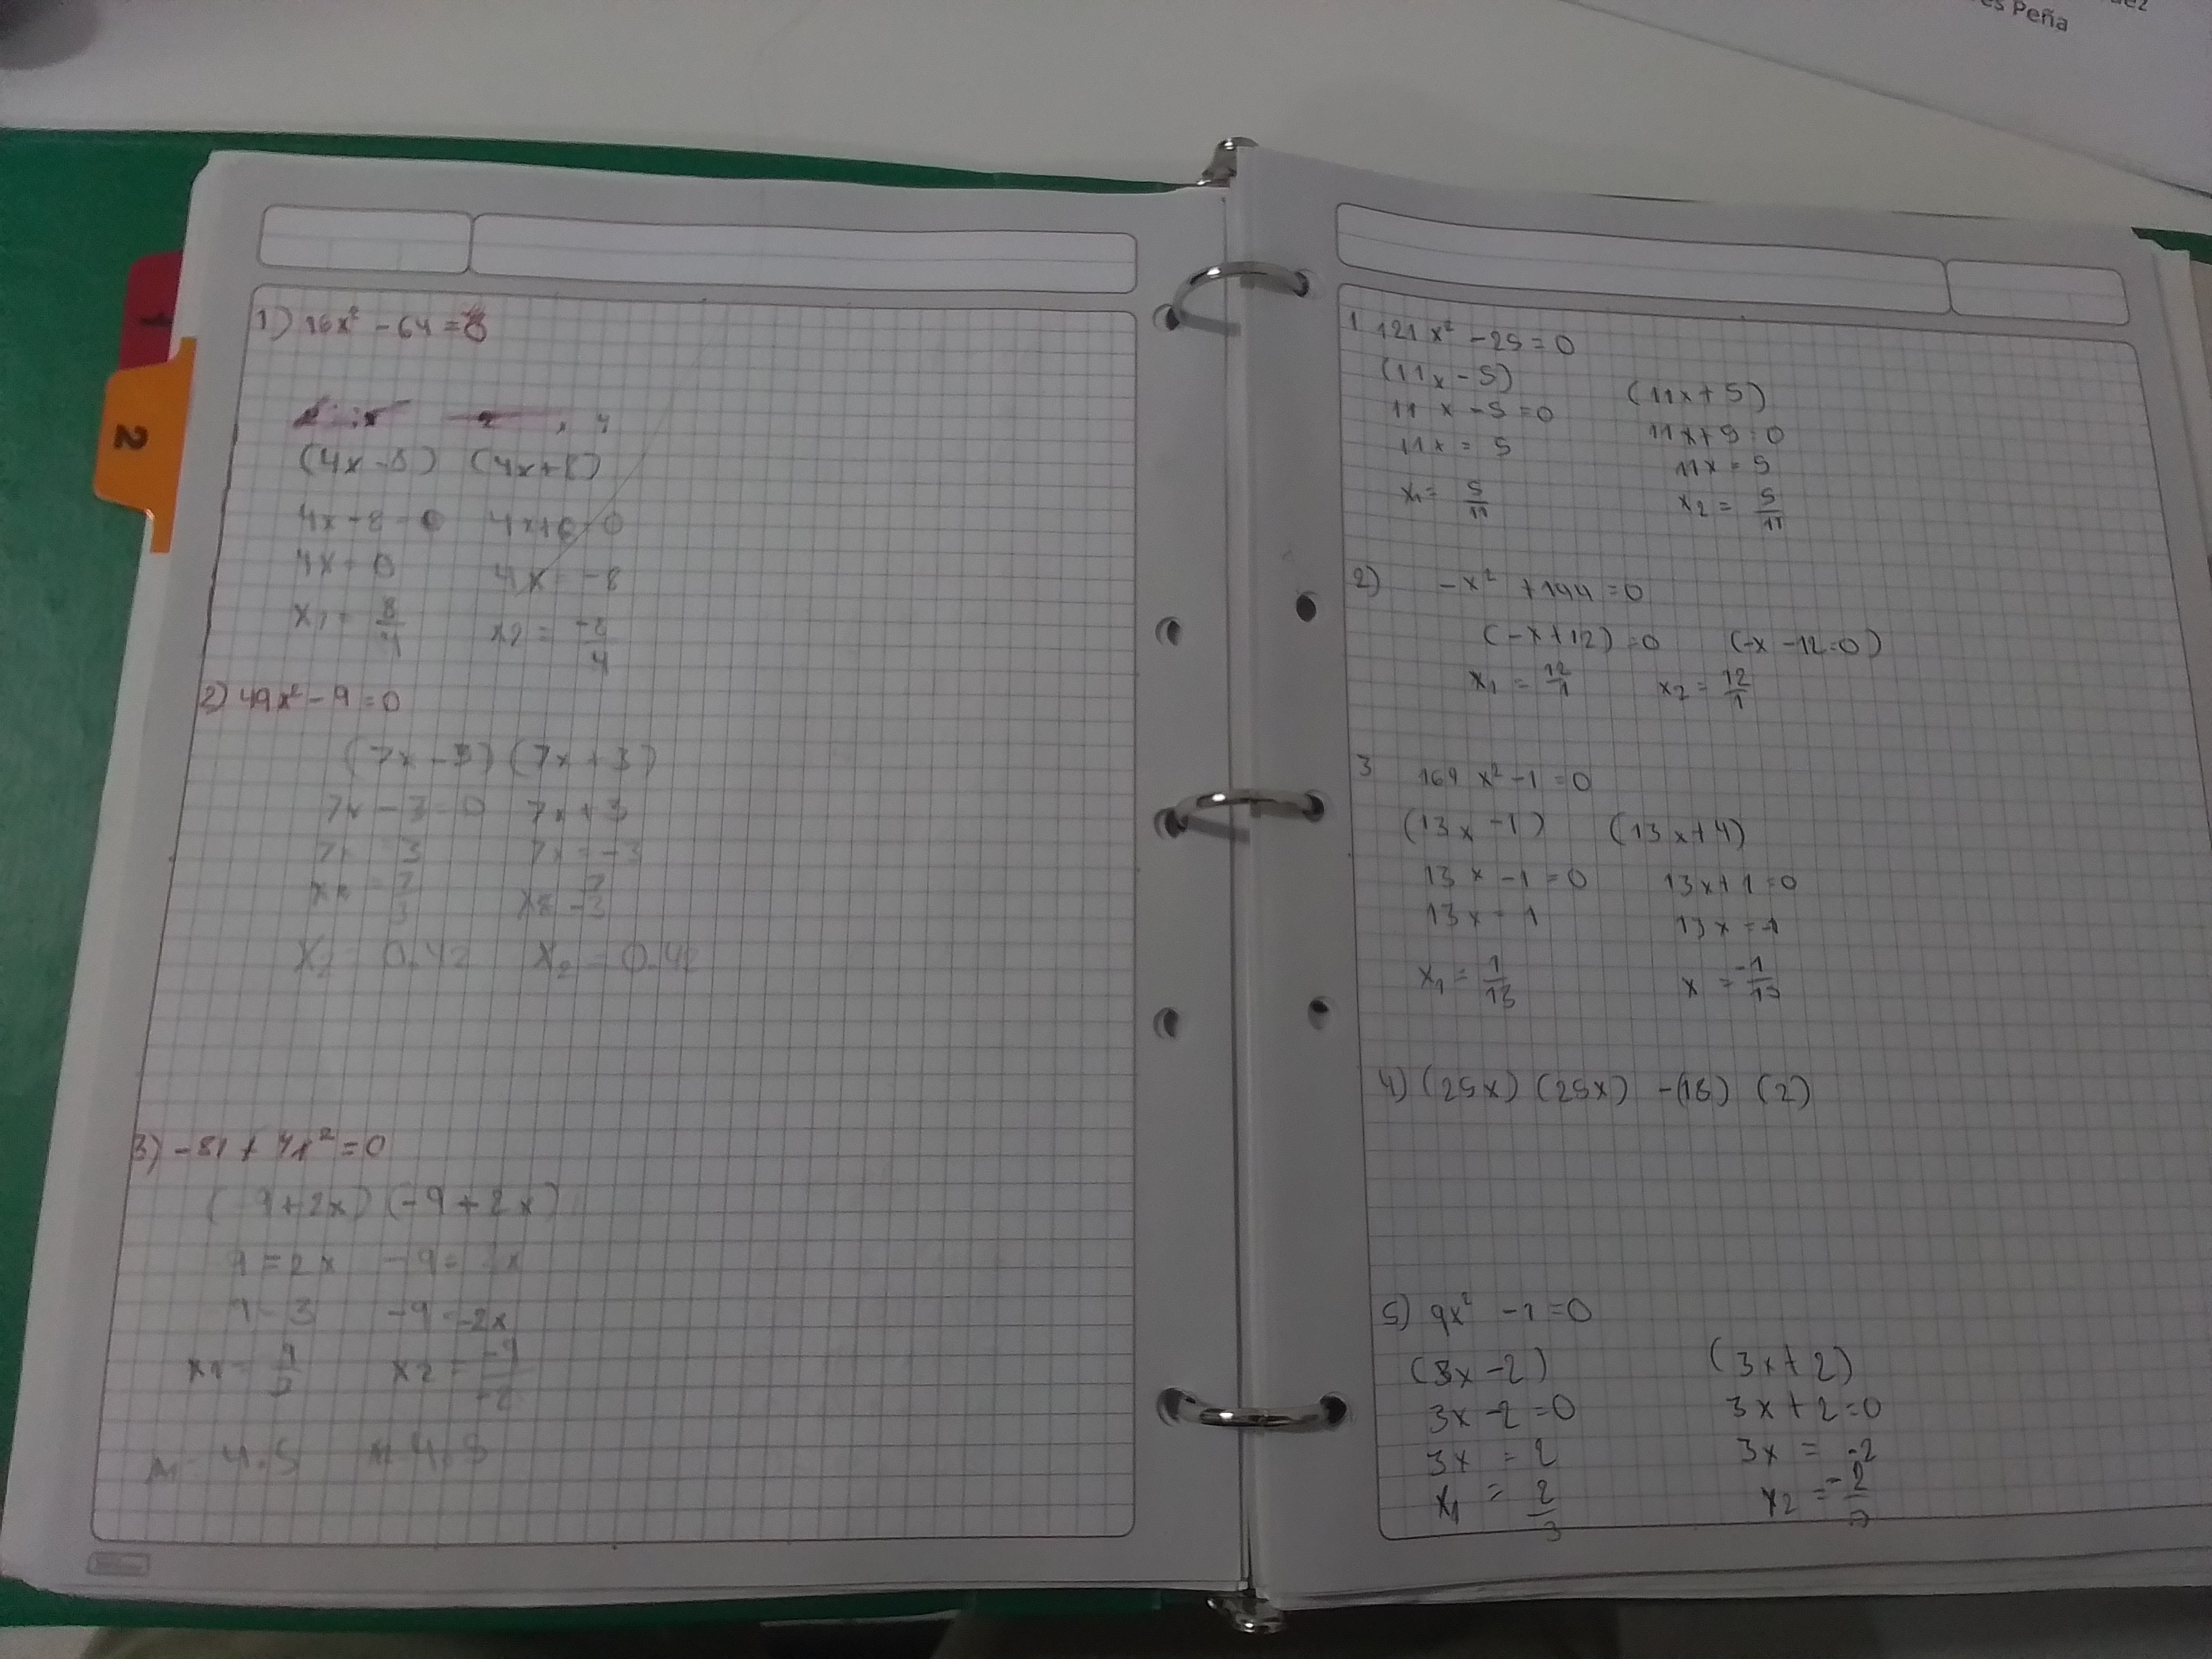 es Peña
2
1) 16x² - 64 = 0
(4x - 8) (4x + 8)
4x - 8 = 0 4x + 8 = 0
4x = 8 4x = -8
x1 = 8/4 x2 = -8/4
2) 49x² - 9 = 0
(7x - 3) (7x + 3)
7x - 3 = 0 7x + 3
7x = 3 7x = -3
x2 = 0.42 x2 = 0.42
3) -81 + 4x² = 0
(9 + 2x) (-9 + 2x)
9 = 2x
-9 = -2x
x1 = 9/2 x2 = -9/-2
4.5 4.5
1 121x² - 25 = 0
(11x - 5) (11x + 5)
11x - 5 = 0 11x + 5 = 0
11x = 5 11x = 5
x1 = 5/11 x2 = 5/11
2) -x² + 144 = 0
(-x + 12) = 0 (-x - 12 = 0)
x1 = 12/1 x2 = 12/1
3 169x² - 1 = 0
(13x - 1) (13x + 1)
13x - 1 = 0 13x + 1 = 0
13x = 1 13x = -1
x1 = 1/13 x = -1/13
4) (25x) (25x) - (18) (2)
5) 9x² - 1 = 0
(3x - 2) (3x + 2)
3x - 2 = 0 3x + 2 = 0
3x = 2 3x = -2
x1 = 2/3 x2 = -2/3